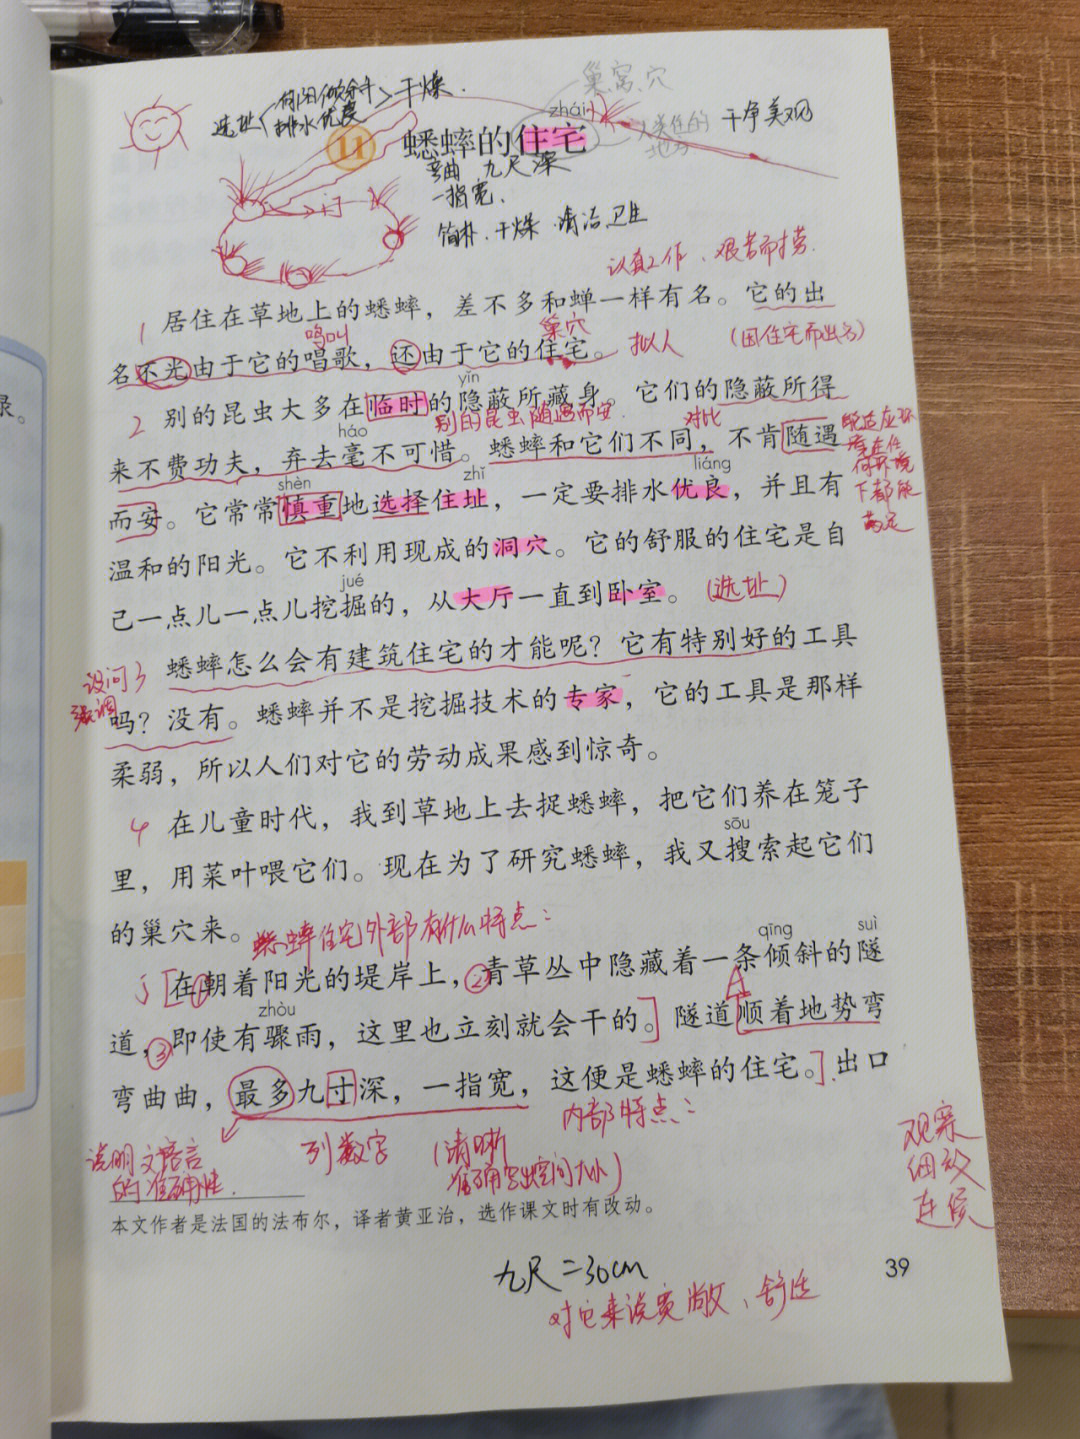 巢、窝、穴
选址
向阳
排水优良
干燥.
zhái
人类住的
地方
干净美观
11 蟋蟀的住宅
弯曲 九尺深
一指宽、
门
简朴、干燥、清洁、卫生
认真工作、艰苦而劳.
1 居住在草地上的蟋蟀，差不多和蝉一样有名。它的出
鸣叫
巢穴
拟人
(因住宅而出名)
名不光由于它的唱歌，还由于它的住宅。
yǐn
2 别的昆虫大多在临时的隐蔽所藏身。它们的隐蔽所得
别的昆虫随遇而安.
对比
háo
来不费功夫，弃去毫不可惜。蟋蟀和它们不同，不肯随遇
能适应环
境在任
何环境
下都能
满足
shèn zhǐ liáng
而安。它常常慎重地选择住址，一定要排水优良，并且有
温和的阳光。它不利用现成的洞穴。它的舒服的住宅是自
jué
己一点儿一点儿挖掘的，从大厅一直到卧室。
(选址)
设问
强调
3 蟋蟀怎么会有建筑住宅的才能呢？它有特别好的工具
吗？没有。蟋蟀并不是挖掘技术的专家，它的工具是那样
柔弱，所以人们对它的劳动成果感到惊奇。
4 在儿童时代，我到草地上去捉蟋蟀，把它们养在笼子
sōu
里，用菜叶喂它们。现在为了研究蟋蟀，我又搜索起它们
的巢穴来。
蟋蟀住宅外部有什么特点：
qīng suì
5 [在①朝着阳光的堤岸上，②青草丛中隐藏着一条倾斜的隧
zhòu
道，③即使有骤雨，这里也立刻就会干的。]隧道顺着地势弯
弯曲曲，最多九寸深，一指宽，这便是蟋蟀的住宅。]出口
内部特点：
说明文语言
的准确性.
列数字
(清晰
准确写出空间大小)
观察
细致
连续
本文作者是法国的法布尔，译者黄亚治，选作课文时有改动。
九尺=30cm
对它来说宽敞、舒适
39